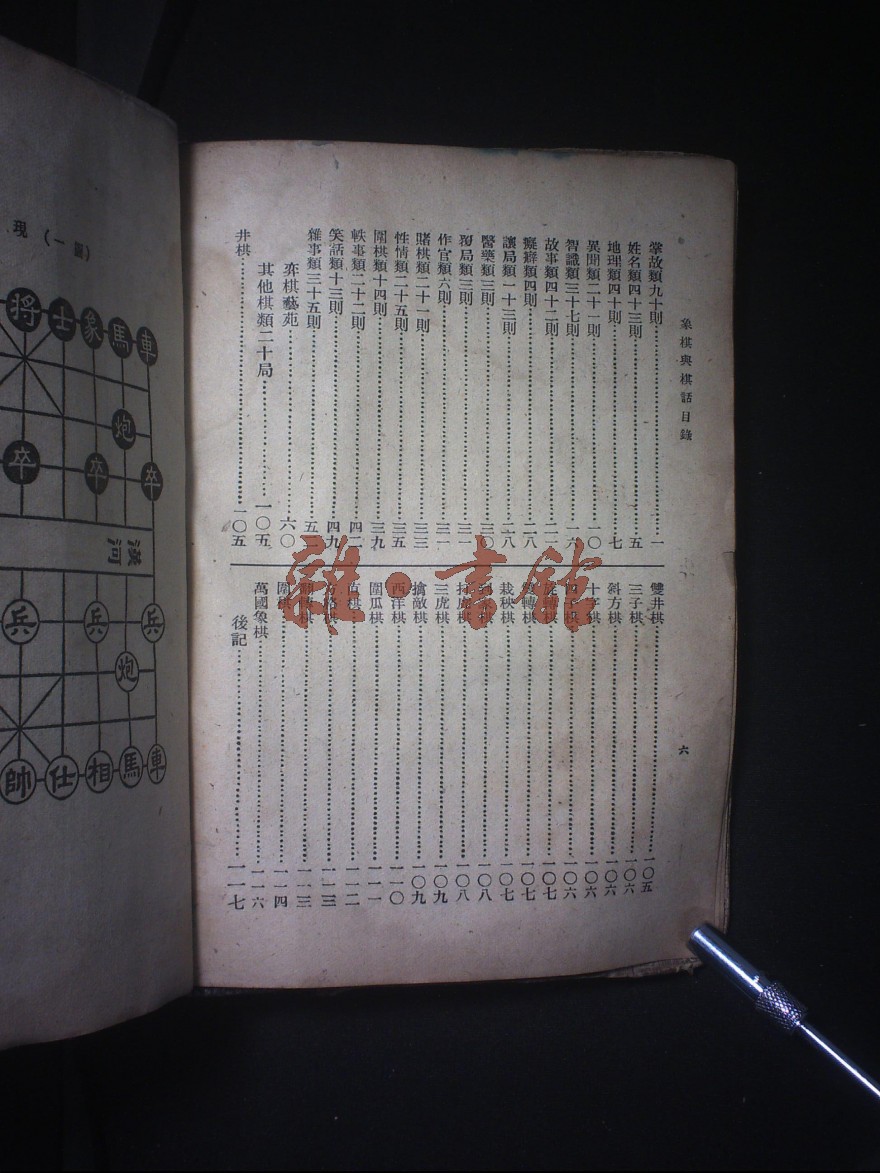 象棋與棋話目錄
六
掌故類九十則 一
姓名類四十三則 五
地理類四十則 七
異聞類二十一則 一〇
智識類三十七則 一六
故事類四十二則 二二
癡癖類四則 二八
讓局類一十三則 二八
醫藥類三則 三〇
覆局類三則 三一
作官類六則 三一
賭棋類二十一則 三三
性情類二十五則 三五
圍棋類十四則 三九
軼事類二十二則 四二
笑話類十三則 四九
雜事類三十五則 五二
弈棋藝苑 六〇
其他棋類二十局 一〇五
井棋 一〇五
雙井棋 一〇五
三子棋 一〇六
斜方棋 一〇六
十字棋 一〇六
四子棋 一〇六
棋 一〇七
轉棋 一〇七
栽秧棋 一〇七
棋 一〇八
打虎棋 一〇八
三虎棋 一〇九
擒敵棋 一〇九
西洋棋 一一〇
圍瓜棋 一一一
直棋 一一二
棋 一一三
棋 一一三
圍棋 一一四
萬國象棋 一一六
後記 一一七
雜·書館
現(一圖)
將士象馬車
炮
卒卒卒
漢河
兵兵兵
炮
帥仕相馬車